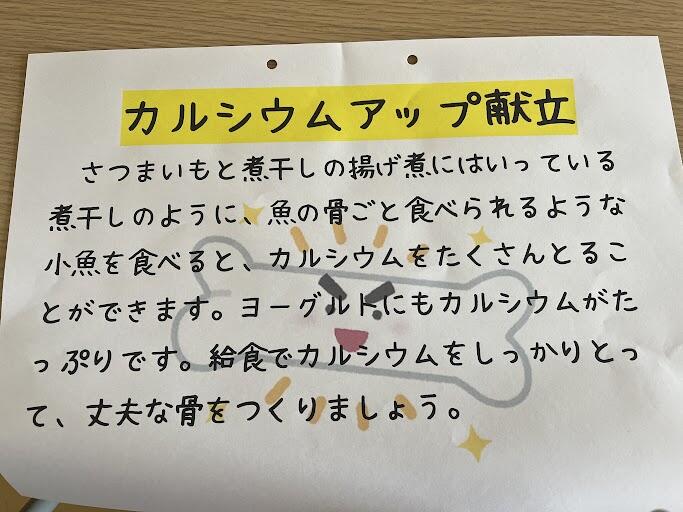 カルシウムアップ献立
さつまいもと煮干しの揚げ煮にはいっている
煮干しのように、魚の骨ごと食べられるような
小魚を食べると、カルシウムをたくさんとるこ
とができます。ヨーグルトにもカルシウムがた
っぷりです。給食でカルシウムをしっかりとっ
て、丈夫な骨をつくりましょう。